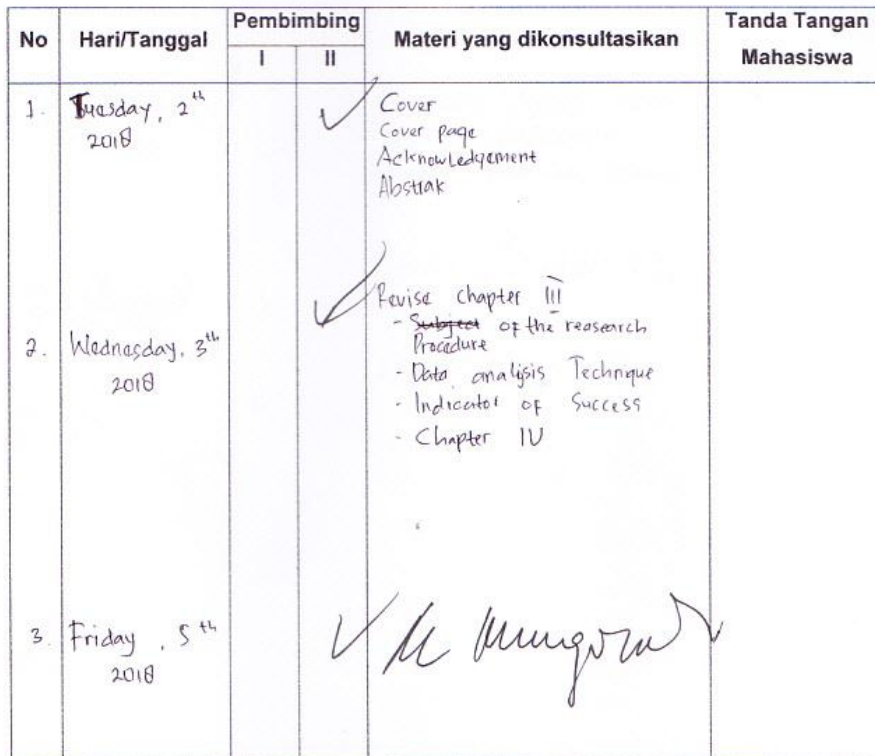 No Hari/Tanggal Pembimbing Materi yang dikonsultasikan Tanda Tangan
Mahasiswa
I II
1. Tuesday, 2th
2018
Cover
Cover page
Acknowledgement
Abstrak
2. Wednesday, 3th
2018
Revise Chapter III
- Subject of the reasearch
Procedure
- Data analysis Technque
- Indicator of Success
- Chapter IV
3. Friday, 5th
2018